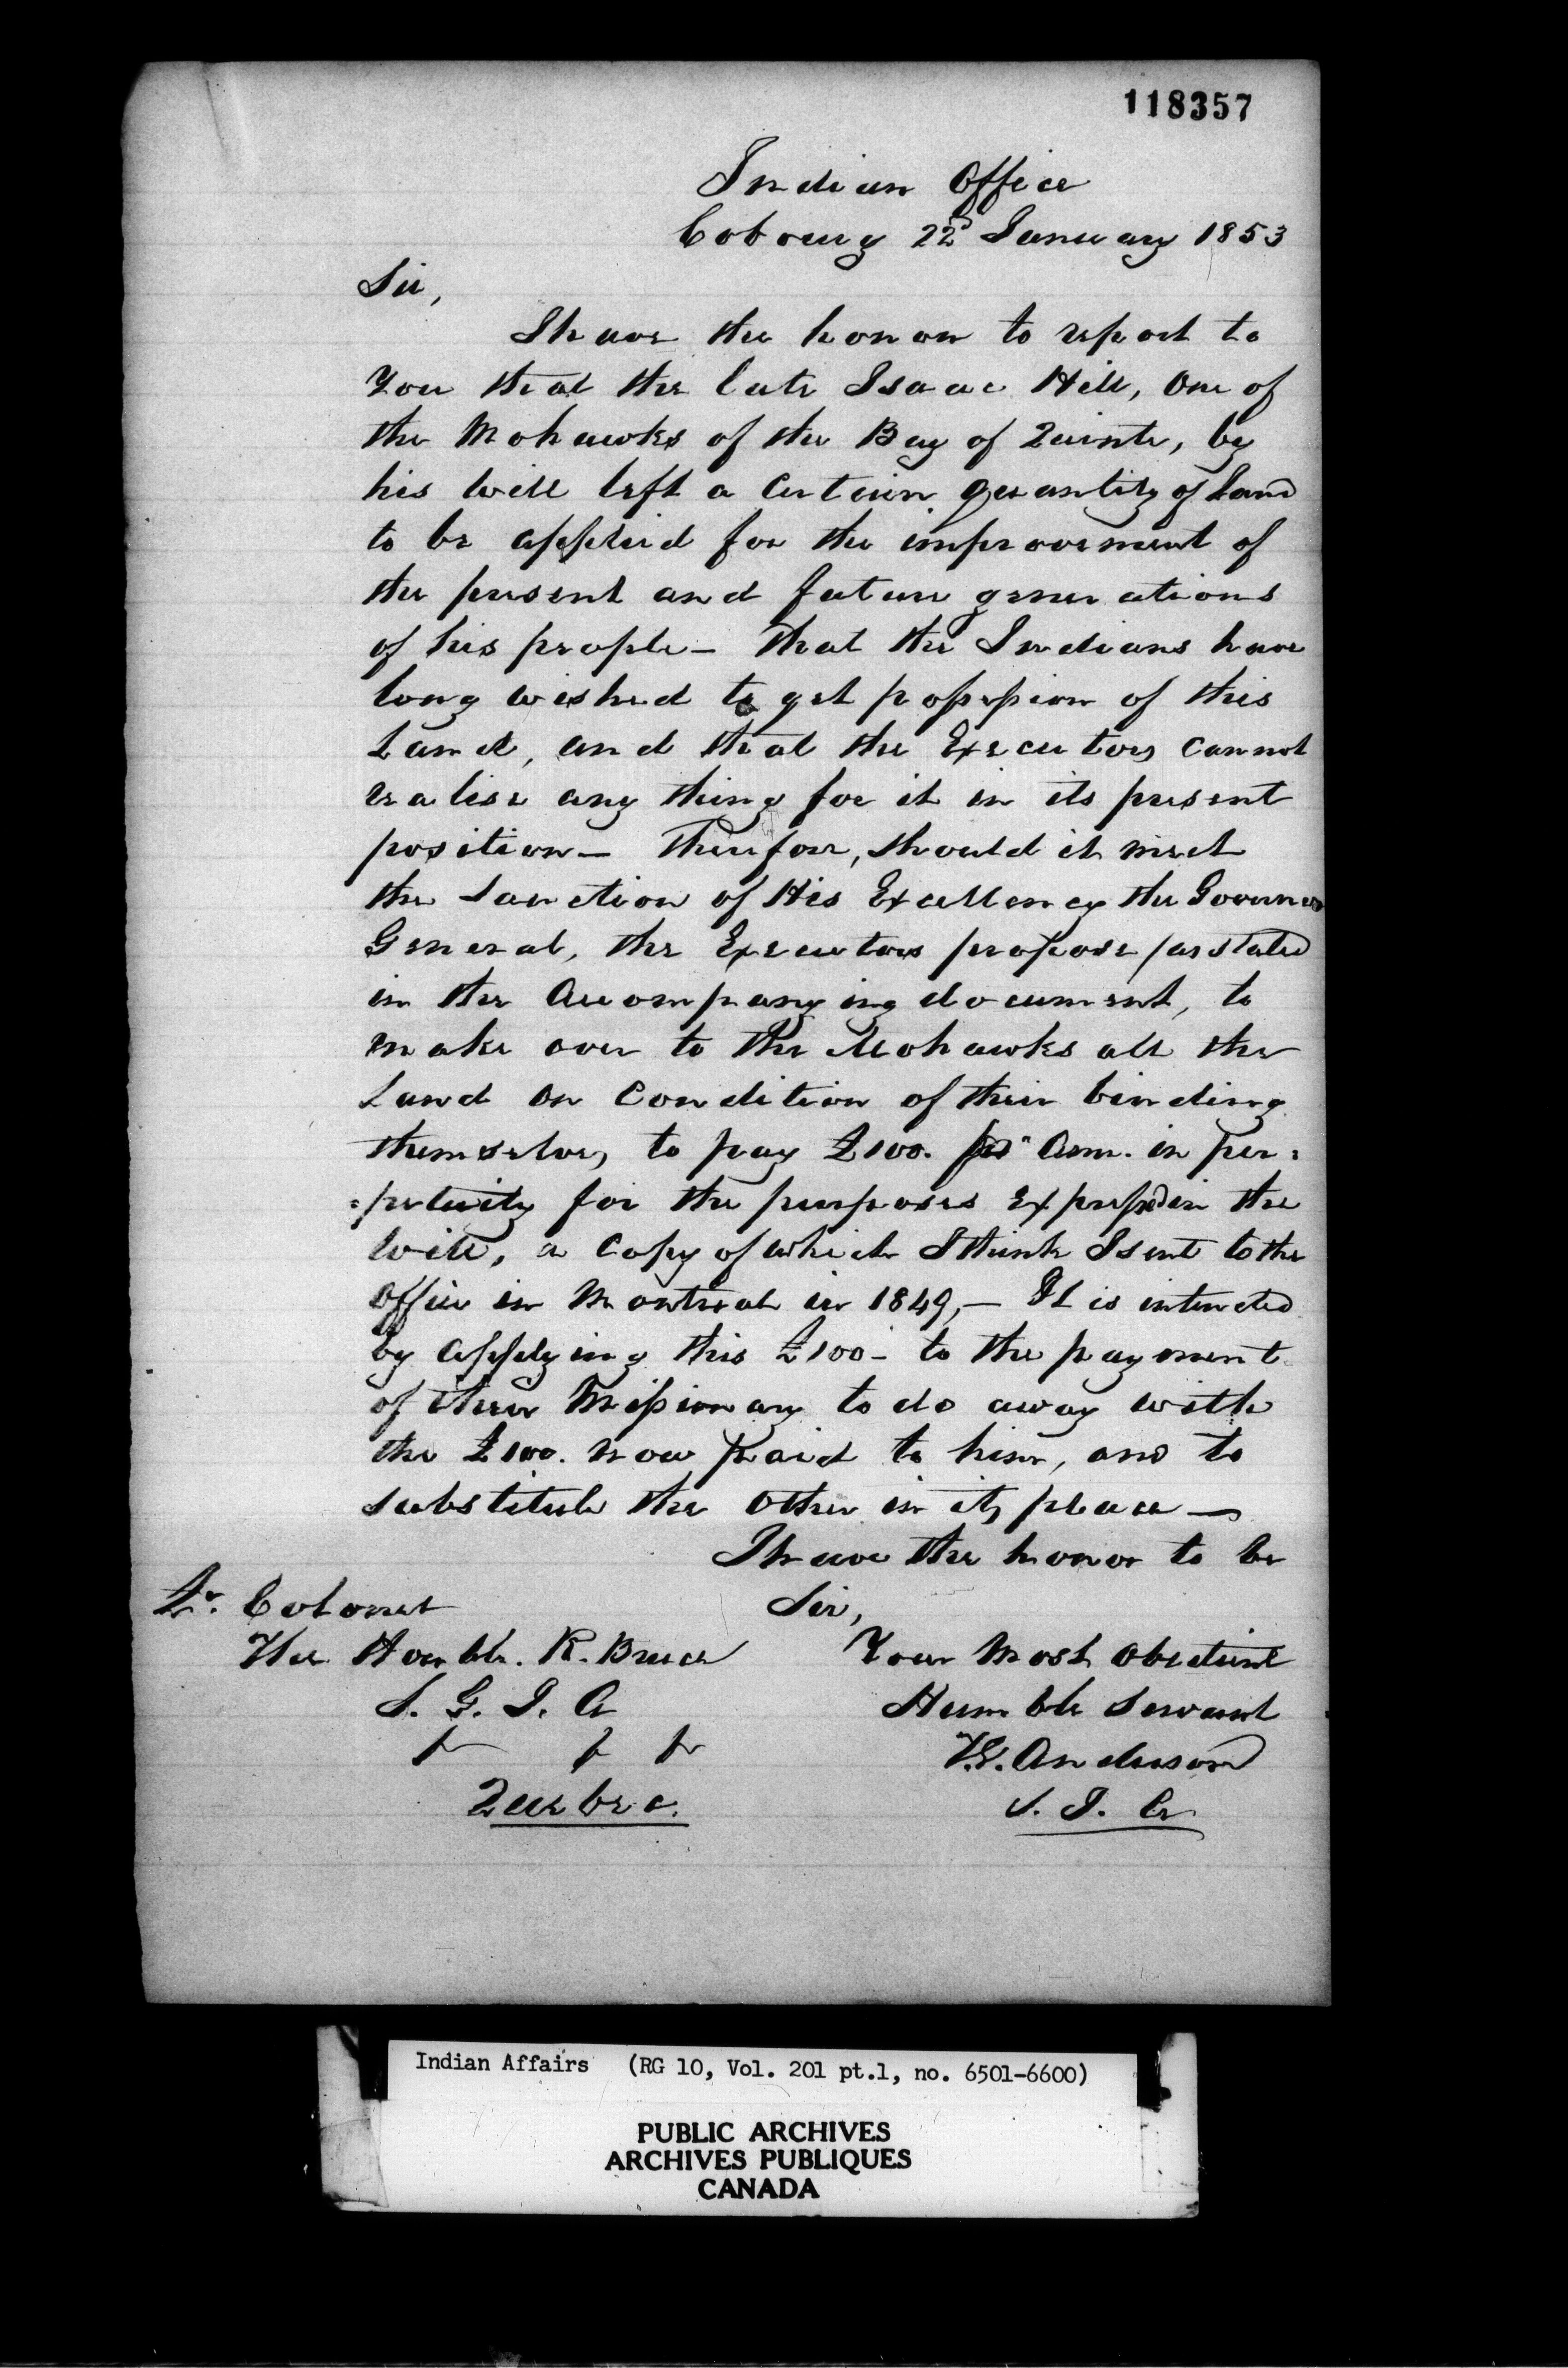 118357
Indian Office
Cobourg 22d January 1853
Sir,
I have the honor to report to
you that the late Isaac Hill, One of
the Mohawks of the Bay of Quinte, by
his will left a Certain Quantity of Land
to be applied for the improvement of
the present and future generations
of his people — That the Indians have
long wished to get possession of this
Land, and that the Executors Cannot
realise any thing for it in its present
position — Therefore, should it meet
the Sanction of His Excellency the Governor
General, the Executors propose /as stated
in the Accompanying document, to
make over to the Mohawks all the
Land on Condition of their binding
themselves, to pay £100. per Ann. in per=
=petuity for the purposes Expressed in the
Will, a Copy of which I think I sent to the
Office in Montreal in 1849, — It is intended
by applying this £100 - to the payment
of their Missionary to do away with
the £100. now paid to him, and to
substitute the Other in its place —
I have the honor to be
Sir,
Lt. Colonel
The Honble. R. Bruce
S. G. I. A
Quebec.
Your Most Obedient
Humble Servant
T.G. Anderson
S. I. A
Indian Affairs (RG 10, Vol. 201 pt.1, no. 6501-6600)
PUBLIC ARCHIVES
ARCHIVES PUBLIQUES
CANADA